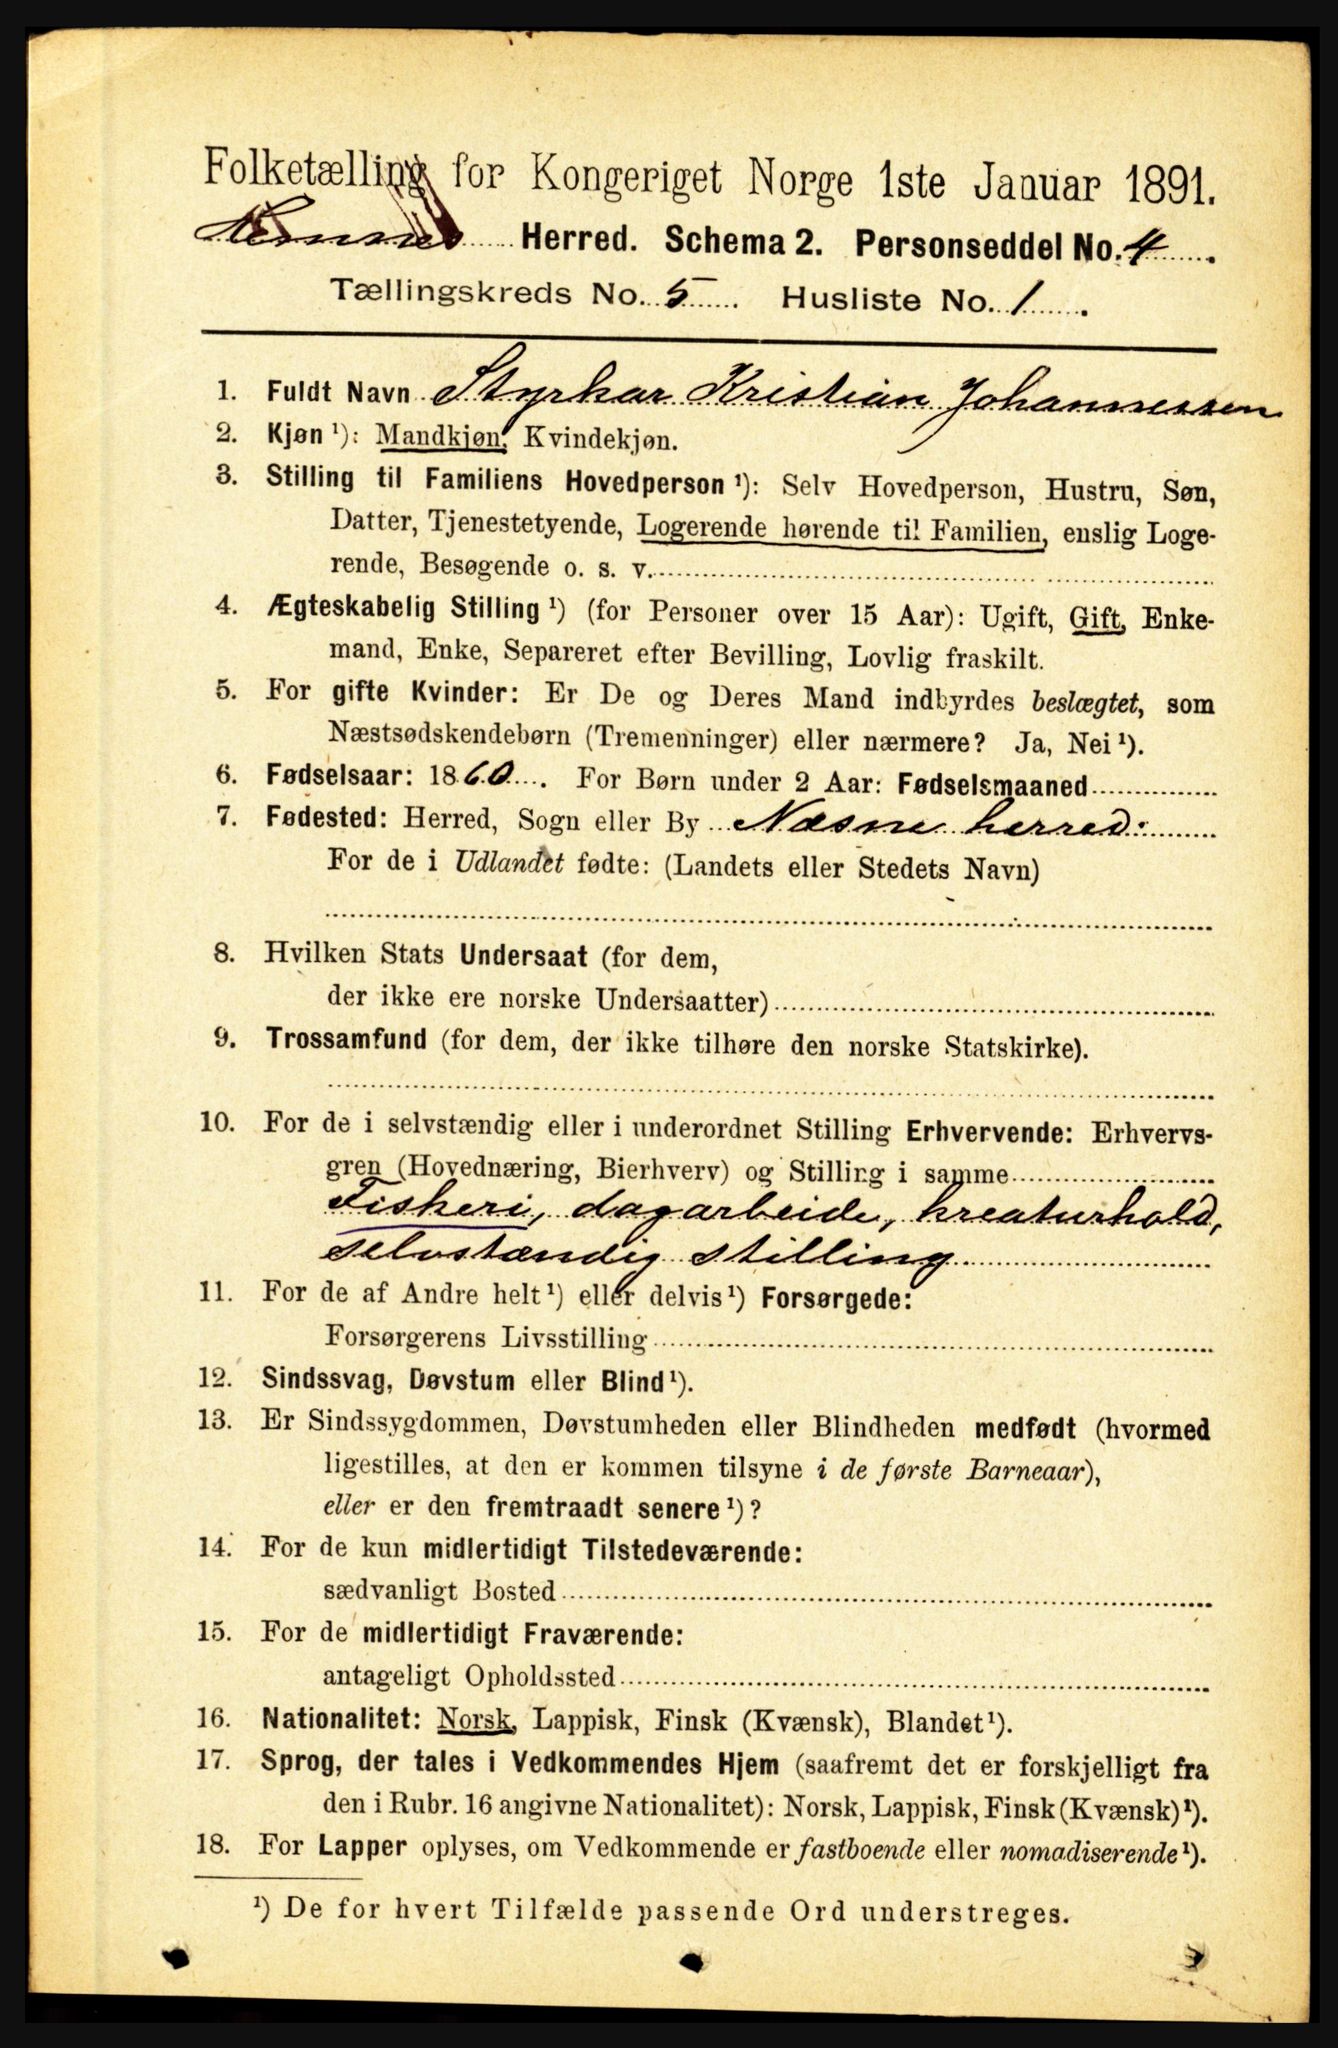 Folketælling for Kongeriget Norge 1ste Januar 1891.
Hemnes Herred. Schema 2. Personseddel No. 4.
Tællingskreds No. 5. Husliste No. 1.
1. Fuldt Navn Styrkar Kristian Johannessen
2. Kjøn ¹): Mandkjøn, Kvindekjøn.
3. Stilling til Familiens Hovedperson ¹): Selv Hovedperson, Hustru, Søn,
Datter, Tjenestetyende, Logerende hørende til Familien, enslig Loge-
rende, Besøgende o. s. v.
4. Ægteskabelig Stilling ¹) (for Personer over 15 Aar): Ugift, Gift, Enke-
mand, Enke, Separeret efter Bevilling, Lovlig fraskilt.
5. For gifte Kvinder: Er De og Deres Mand indbyrdes beslægtet, som
Næstsødskendebørn (Tremenninger) eller nærmere? Ja, Nei ¹).
6. Fødselsaar: 1860. For Børn under 2 Aar: Fødselsmaaned
7. Fødested: Herred, Sogn eller By Næsne herred.
For de i Udlandet fødte: (Landets eller Stedets Navn)
8. Hvilken Stats Undersaat (for dem,
der ikke ere norske Undersaatter)
9. Trossamfund (for dem, der ikke tilhøre den norske Statskirke).
10. For de i selvstændig eller i underordnet Stilling Erhvervende: Erhvervs-
gren (Hovednæring, Bierhverv) og Stilling i samme
Fiskeri, dagarbeide, kreaturhold,
selvstændig stilling
11. For de af Andre helt ¹) eller delvis ¹) Forsørgede:
Forsørgerens Livsstilling
12. Sindssvag, Døvstum eller Blind ¹).
13. Er Sindssygdommen, Døvstumheden eller Blindheden medfødt (hvormed
ligestilles, at den er kommen tilsyne i de første Barneaar),
eller er den fremtraadt senere ¹)?
14. For de kun midlertidigt Tilstedeværende:
sædvanligt Bosted
15. For de midlertidigt Fraværende:
antageligt Opholdssted
16. Nationalitet: Norsk, Lappisk, Finsk (Kvænsk), Blandet ¹).
17. Sprog, der tales i Vedkommendes Hjem (saafremt det er forskjelligt fra
den i Rubr. 16 angivne Nationalitet): Norsk, Lappisk, Finsk (Kvænsk) ¹).
18. For Lapper oplyses, om Vedkommende er fastboende eller nomadiserende ¹).
¹) De for hvert Tilfælde passende Ord understreges.